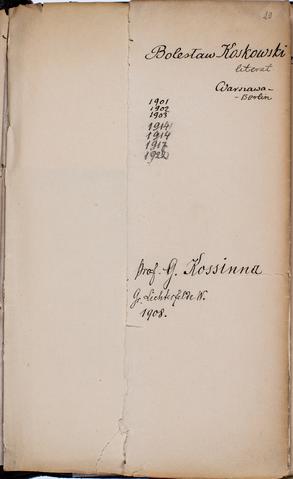 20
Bolesław Koskowski
literat
Warszawa-
-Berlin
1901
1902
1903
1914
1914
1917
1922
Prof. G. Kossinna
Gr. Lichterfelde W.
1908.